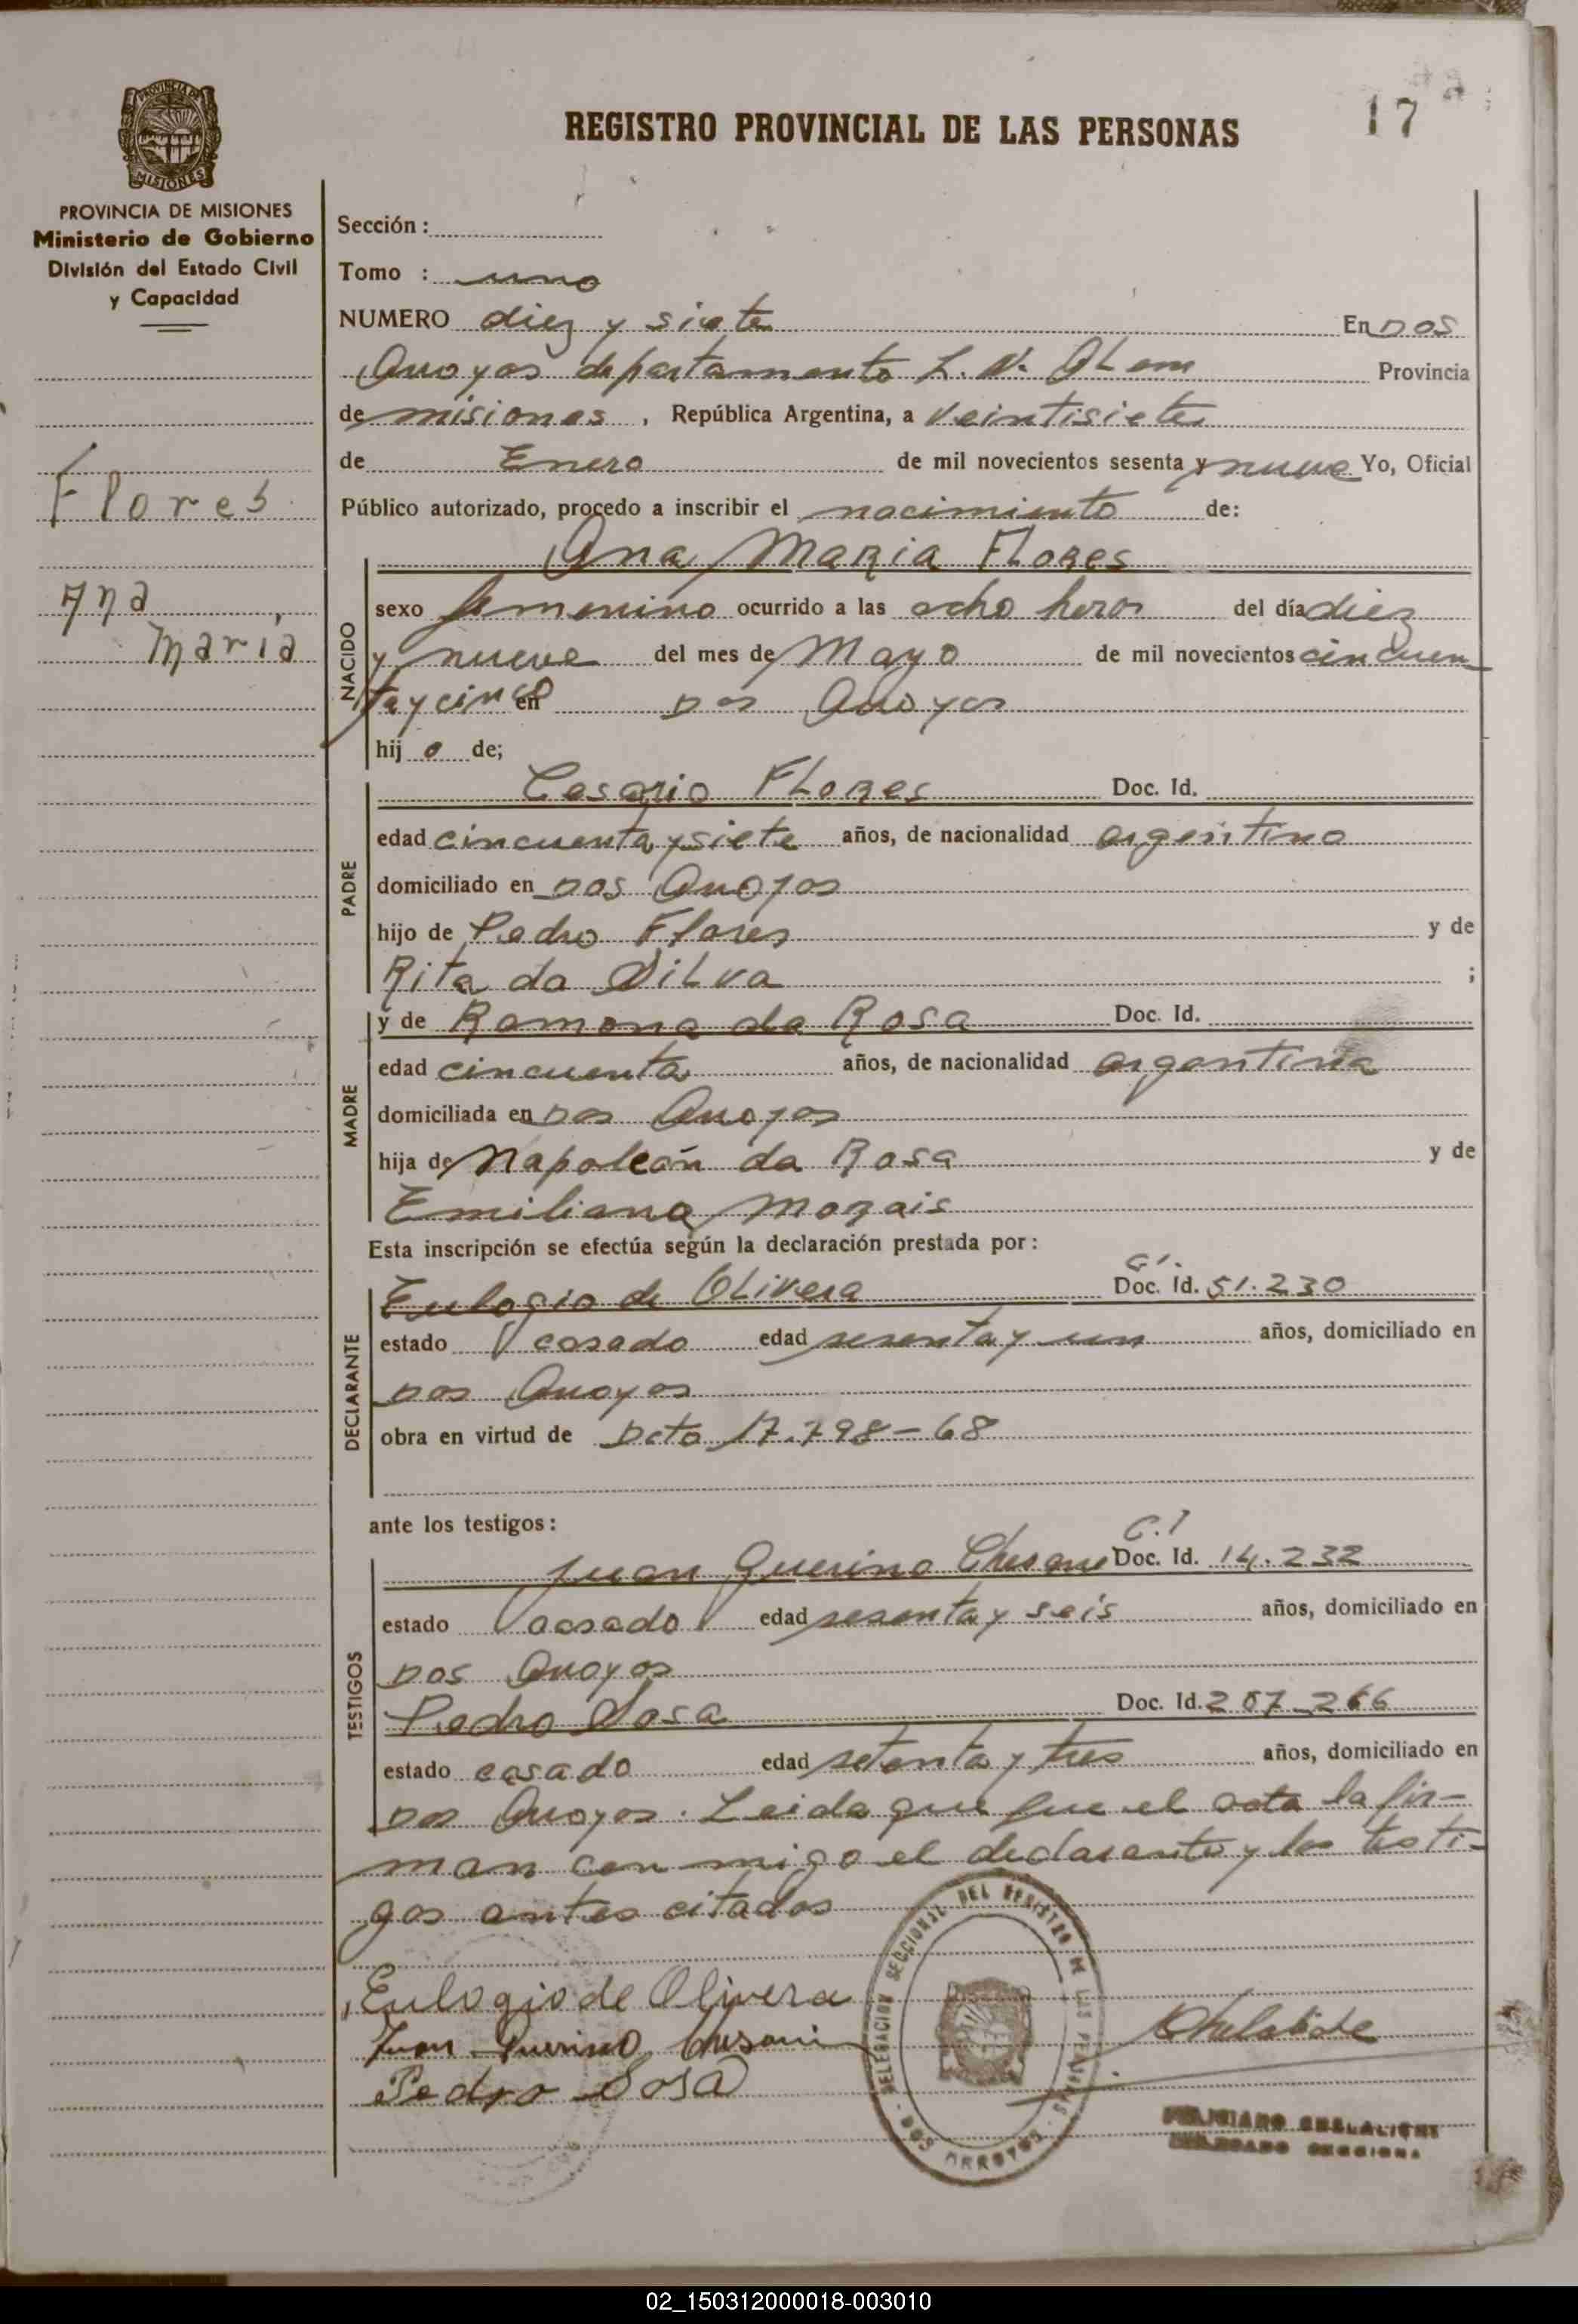 17
REGISTRO PROVINCIAL DE LAS PERSONAS
PROVINCIA DE MISIONES
PROVINCIA DE MISIONES
Ministerio de Gobierno
División del Estado Civil
y Capacidad
Flores
Ana
María
Sección :
Tomo : uno
NUMERO diez y siete En Dos
Arroyos departamento L. N. ALem Provincia
de misiones , República Argentina, a Veintisiete
de Enero de mil novecientos sesenta y nueve Yo, Oficial
Público autorizado, procedo a inscribir el nacimiento de:
Ana Maria Flores
NACIDO
sexo femenino ocurrido a las ocho horas del día diez
y nueve del mes de Mayo de mil novecientos cincuen
ta y cinco en Dos Arroyos
hij o de;
PADRE
Cesario Flores Doc. Id.
edad cincuenta y siete años, de nacionalidad argentino
domiciliado en Dos Arroyos
hijo de Pedro Flores y de
Rita da Silva ;
MADRE
y de Ramona da Rosa Doc. Id.
edad cincuenta años, de nacionalidad argentina
domiciliada en Dos Arroyos
hija de Napoleón da Rosa y de
Emiliana Morais
Esta inscripción se efectúa según la declaración prestada por :
DECLARANTE
Eulogio de Olivera C.I. Doc. Id. 51.230
estado casado edad sesenta y un años, domiciliado en
Dos Arroyos
obra en virtud de Dcto 17.798-68
ante los testigos :
TESTIGOS
Juan Querino C.I Doc. Id. 14.232
estado casado edad sesenta y seis años, domiciliado en
Dos Arroyos
Pedro Sosa Doc. Id. 207.266
estado casado edad setenta y tres años, domiciliado en
Dos Arroyos. Leida que fue el acta la fir-
man con migo el declarante y los testi-
gos antes citados
Eulogio de Olivera
Juan Querino
Pedro Sosa
DELEGACION SECCIONAL DEL REGISTRO DE LAS PERSONAS - DOS ARROYOS -
02_150312000018-003010